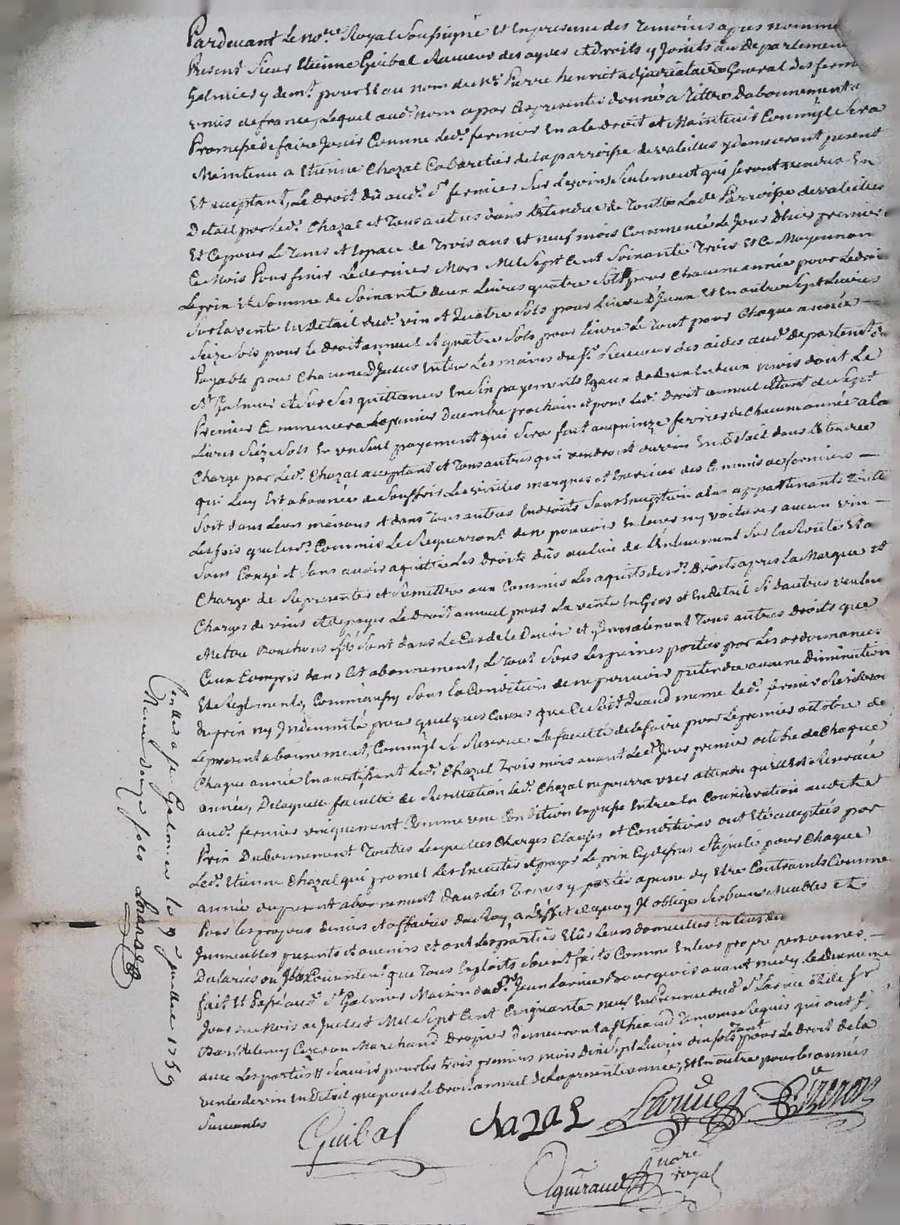 Pardevant Le no.re Royal Soussigné et En presence des Temoins apres nommé
Present Sieur Etienne Guibal Receveur des aydes et Droits y Joints au Departement
Galmier y dem.t pour et au nom de M.e Pierre henriet adjudicataire General des fermes
unies de france, Lequel aud. nom a par Ces presentes donné a Tittre Dabonnement
Promesse de faire Jouir Comme led. fermier En a le droit et Maintenir Comme Il Sera
Maintenu a Etienne Chazal Cabaretier de la parroisse de valeilles y demeurant present
Et acceptant, Le Droit dû aud. S.r fermier Sur les vins Seulement qui Seront vendus En
Detail par led. Chazal et Tous autres dans Létendue de Toutte La de Parroisse de valeilles
Et Ce pour Le Tems et Espace de Trois ans et neuf mois Commencé Le Jour D'hier premier
Ce Mois Pour finir Le dernier Mars Mil Sept Cent Soixante Trois Et Ce Moyennant
Le prix Et Somme de Soixante deux Livres quatre Sols pour Chacune année pour Le droit
Sur La vente En Detail dud. vin et Quatre Sols pour Livre D'Iceux Et En outre Sept Livres
Seize Sols pour le Droit annuel et quatre Sols pour Livre Le Tout pour Chaque année
Payable pour Chacune D'Icelles Entre Les mains du S.r Receveur des aides aud. Departement de
S.t Galmier et Sur Ses quittances En payements Egaux de deux En deux mois dont Le
Premier Commencera Le premier Decembre prochain et pour led. Droit annuel Etant de Sept
Livres Seize Sols En un Seul payement qui Sera fait au quinze fevrier de Chacune année a la
Charge par Led. Chazal acceptant et Tous autres qui vendront du vin En Detail dans L'étendue
qui Luy Est abonnée de Souffrir Les visites marques et Exercices des Commis du fermier
Soit dans Leurs maisons et dans Tous autres Endroits Sans Exception a Eux appartenants Toutte
Les fois que lesd. Commis Le Requerront de ne pouvoir Enlever ny voiturer aucun vin
Sans Congé et Sans avoir aquitté Les Droits dûs au lieu de L'enlevement Sur La Route Et a
Charge de Representer et Remettre aux Commis Les aquits desd. Droits apres La Marque et
Charges de vins et de payer Le Droit annuel pour La vente En Gros et En Detail Si dautres veulent
Mettre Bouchons S'ils Sont dans Le Cas de le Devoir et Generalement Tous autres Droits que
Ceux Compris dans Cet abonnement, Le Tout Sous Les peines portées par Les ordonnances
Et Reglements, Comm'aussy Sous La Condition de ne pouvoir pretendre aucune Diminution
du prix ny Indemnité pour quelques Causes que Ce Soit Quand meme led. fermier
Le present abonnement, Comme Il Se Reserve La faculté de le faire pour Le premier octobre de
Chaque année En avertissant Led. Chazal Trois mois avant Led. Jour premier octobre de Chaque
année, De laquelle faculté de Resiliation led. Chazal ne pourra user attendu quelle Est Reservée
aud. fermier uniquement Comme une Condition Expresse Entrée En Consideration aud.
Prix Dabonnement Touttes Lesquelles Charges Clauses et Conditions ont Eté acceptées par
Led. Etienne Chazal qui promet Les Executer et payer Le prix Cy dessus Stipulé pour Chaque
année du present abonnement dans Les Termes y portés a peine dy Etre Contraint Comme
Pour les propres deniers et affaires du Roy, a L'effet de quoy Il oblige Ses biens Meubles et
Immeubles presents et avenir et ont Les parties Elû Leurs domiciles En Leurs
ou Ils Consentent que Tous Exploits Soient faits Comme En leurs propre personnes.
fait Et Passé aud. S.t Galmier Maison du S.r Jean Bourgeois avant midy Le Deuxieme
Jour du Mois de Juillet Mil Sept Cent Cinquante Neuf En presence du S.r
Barthelemy Marchand Drapier demeurant aud. S.t Galmier Temoins Requis qui ont Signé
avec Les parties Et Scavoir pour les trois premiers mois Dix Sept Livres dix sols tant pour Le Droit de la
vente de vin En Detail que pour Le Droit annuel de La presente année, Et En outre pour les années
Suivantes
Guibal Chazal
no.re
royal
Controlé a S.t Galmier le 9 juillet 1759
Reçu douze sols